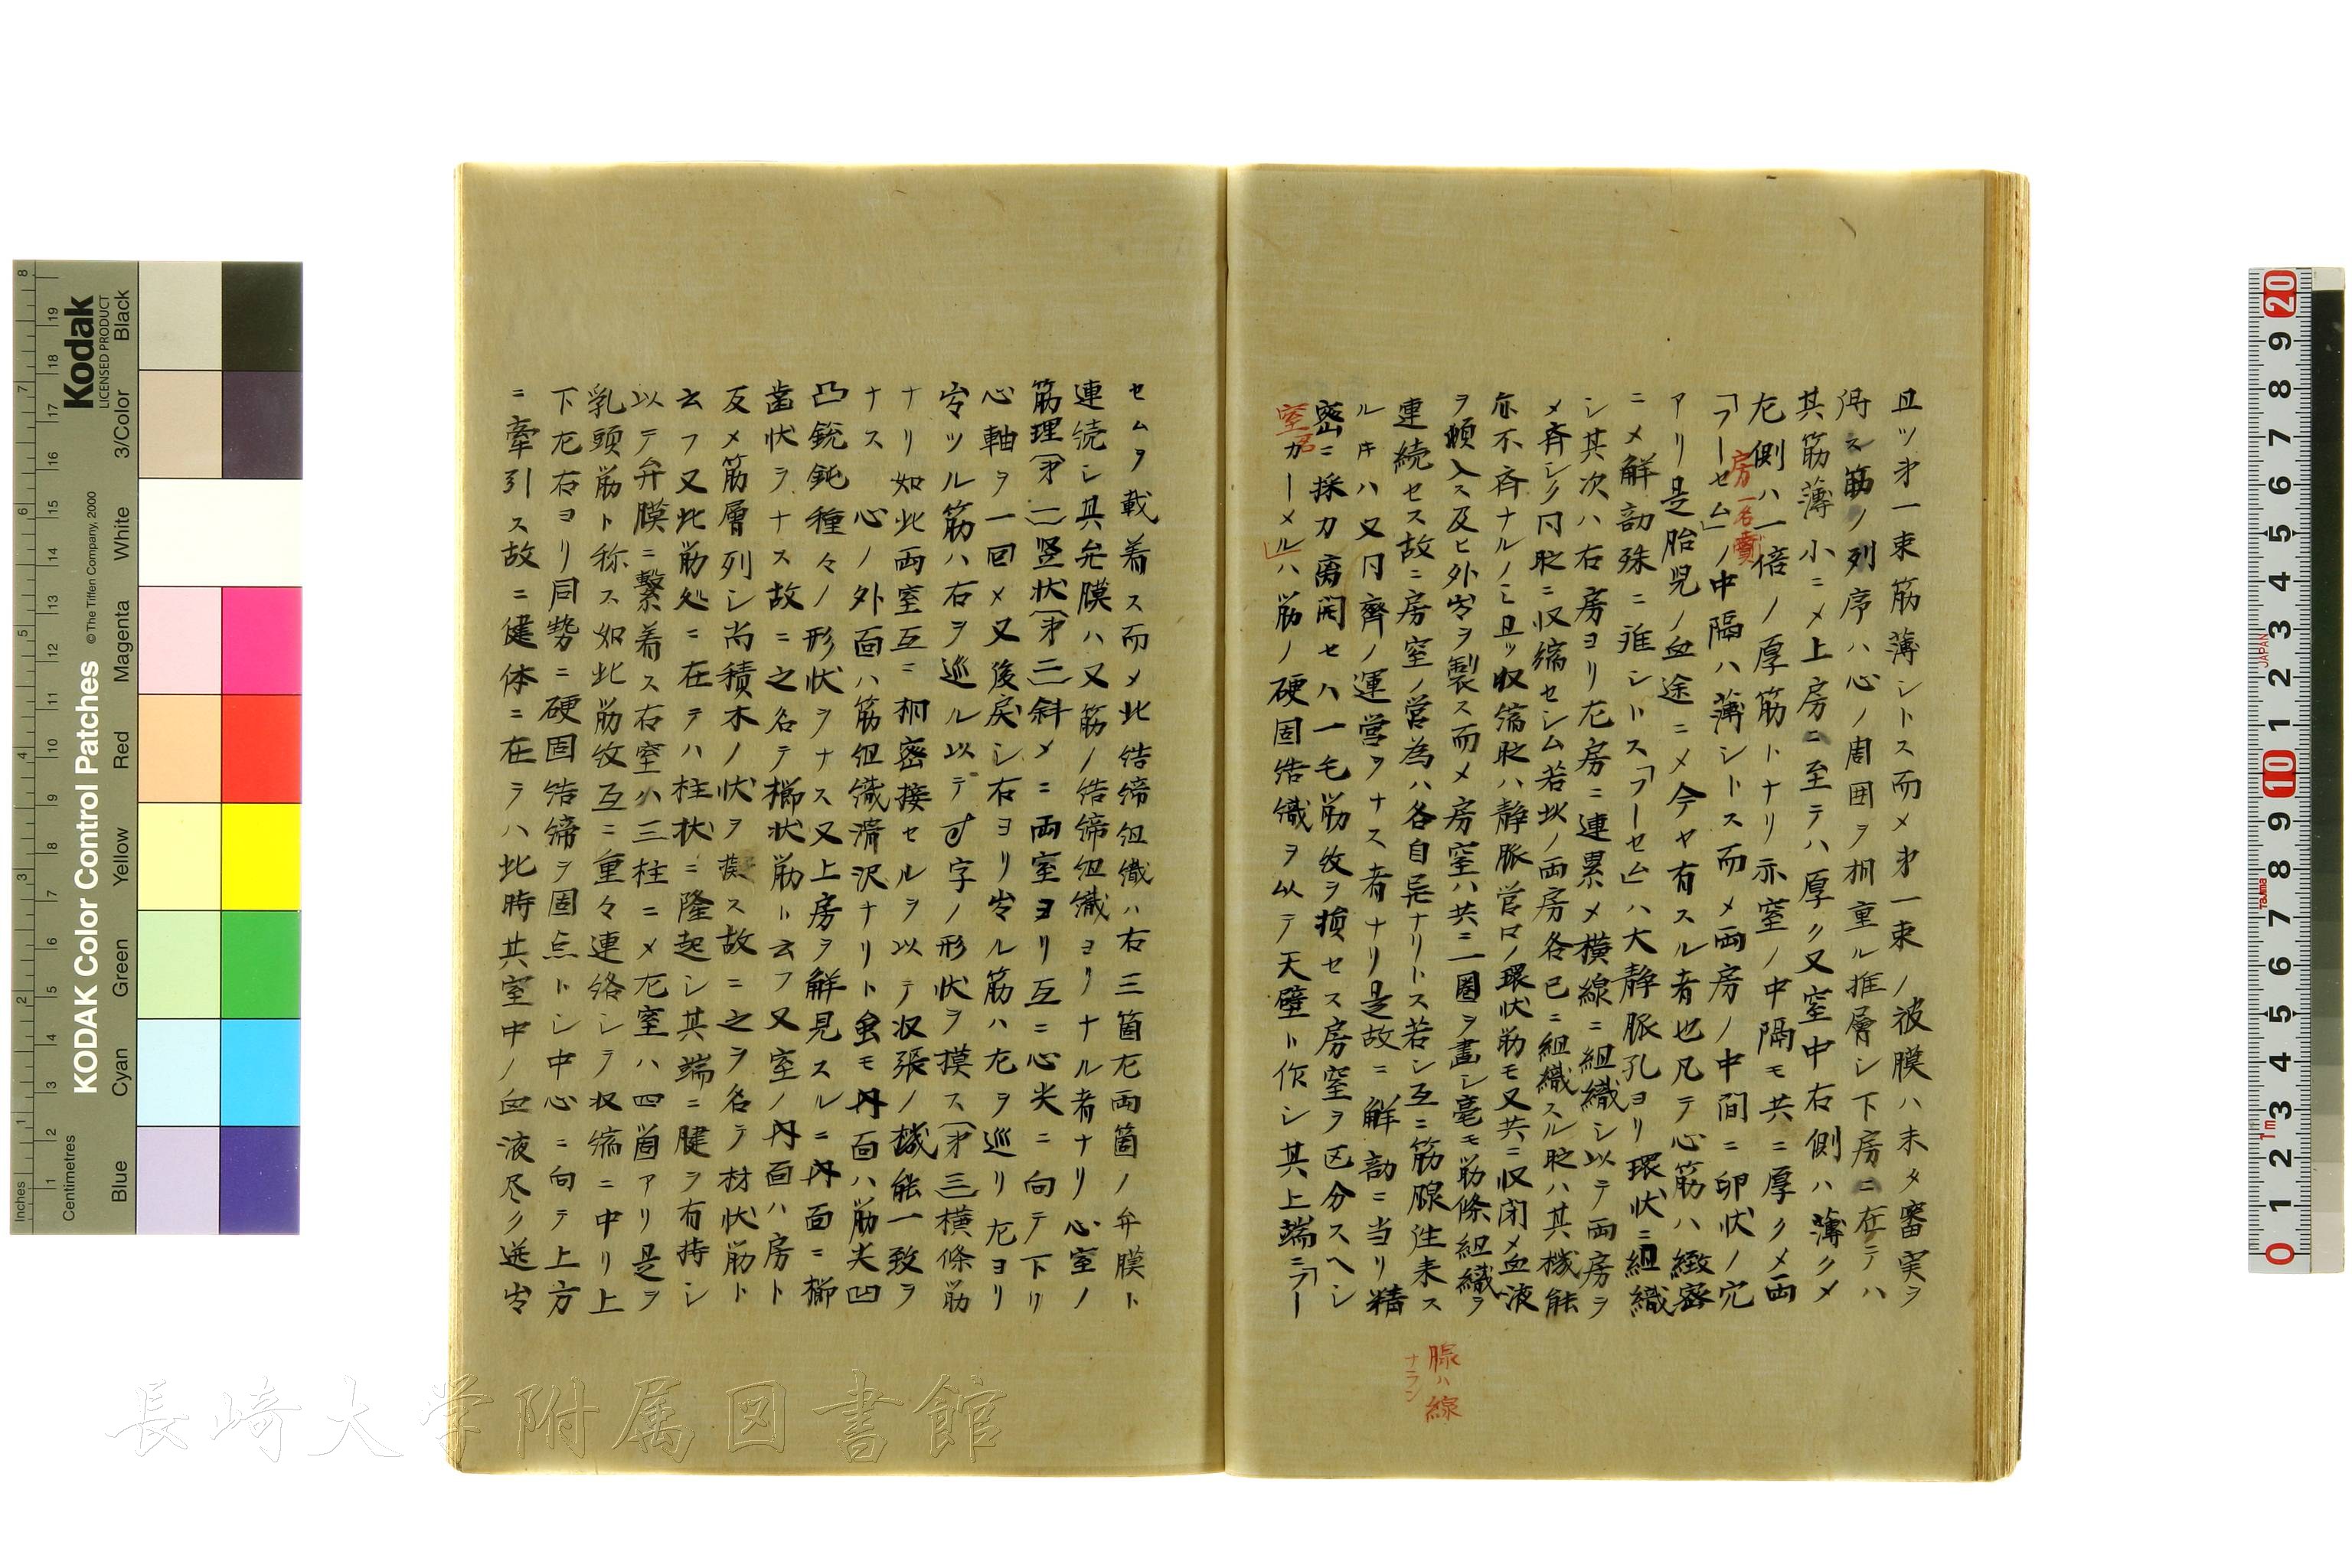 且ツ才一束筋薄シトス而メ才一束ノ彼膜ハ未タ審実ヲ
得ス筋ノ列序ハ心ノ周囲ヲ相重ル推層シ下房ニ在テハ
其筋薄小ニメ上房ニ至テハ厚ク又室中右側ハ薄クメ
左側ハ一倍ノ厚筋トナリ示室ノ中隔モ共ニ厚クメ両
房一名竇
「フーセム」ノ中隔ハ薄シトス而メ両房ノ中間ニ卵状ノ穴
アリ是胎児ノ血途ニメ今ヤ有スル者也凡テ心筋ハ緻密
ニメ解剖殊ニ難シトス「フーセム」ハ大静脈孔ヨリ環状ニ組織
シ其次ハ右房ヨリ左房ニ連累メ横線ニ組織シ以テ両房ヲ
メ斉シク同時ニ収縮セシム若此ノ両房各已ニ組織スル時ハ其機能
亦不斉ナルノミ且ツ収縮時ハ静脈管口ノ環状筋モ又共ニ収閉メ血液
ヲ傾入ス及ヒ外出ヲ製ス而メ房室ハ共ニ一圏ヲ畫シ毫モ筋條組織ヲ
連続セス故ニ房室ノ営為ハ各自异ナリトス若シ互ニ筋腺往来ス
腺ハ線
ナラン
ル片ハ又同齊ノ運営ヲナス者ナリ是故ニ解剖ニ当リ精
密ニ採刀离開セハ一毛筋攵ヲ損セス房室ヲ区分スヘシ
室名
「カーメル」ハ筋ノ硬固結織ヲ以テ天壁ト作シ其上端ニ「フー
セムヲ載着ス而メ此結締组織ハ右三箇左両箇ノ弁膜ト
連続シ其弁膜ハ又筋ノ結締组織ヨリナル者ナリ心室ノ
筋理〔才一〕竖状〔才二〕斜メニ両室ヨリ互ニ心尖ニ向テ下リ
心軸ヲ一回メ又後戻シ右ヨリ出ル筋ハ左ヲ巡リ左ヨリ
出ツル筋ハ右ヲ巡ル以テ字ノ形状ヲ摸ス〔才三〕横條筋
ナリ如此両室互ニ相密接セルヲ以テ収張ノ機能一致ヲ
ナス心ノ外面ハ筋组織滑沢ナリト虽モ内面ハ筋尖凹
凸鋭鈍種々ノ形状ヲナス又上房ヲ解見スルニ内面ニ櫛
歯状ヲナス故ニ之名テ櫛状筋ト云フ又室ノ内面ハ房ト
反メ筋層列シ尚積木ノ状ヲ摸ス故ニ之ヲ名テ材状筋ト
云フ又此筋処ニ在テハ柱状ニ隆起シ其端ニ腱ヲ有持シ
以テ弁膜ニ繋着ス右室ハ三柱ニメ左室ハ四箇アリ是ヲ
乳頭筋ト称ス如此筋攵互ニ重々連絡シテ収縮ニ中リ上
下左右ヨリ同勢ニ硬固結締ヲ固点トシ中心ニ向テ上方
ニ牽引ス故ニ健体ニ在ラハ此時共室中ノ血液尽ク送出
Kodak
LICENSED PRODUCT
KODAK Color Control Patches © The Tiffen Company, 2000
Inches
Centimetres
Blue Cyan Green Yellow Red Magenta White 3/Color Black
JAPAN
長崎大学附属図書館